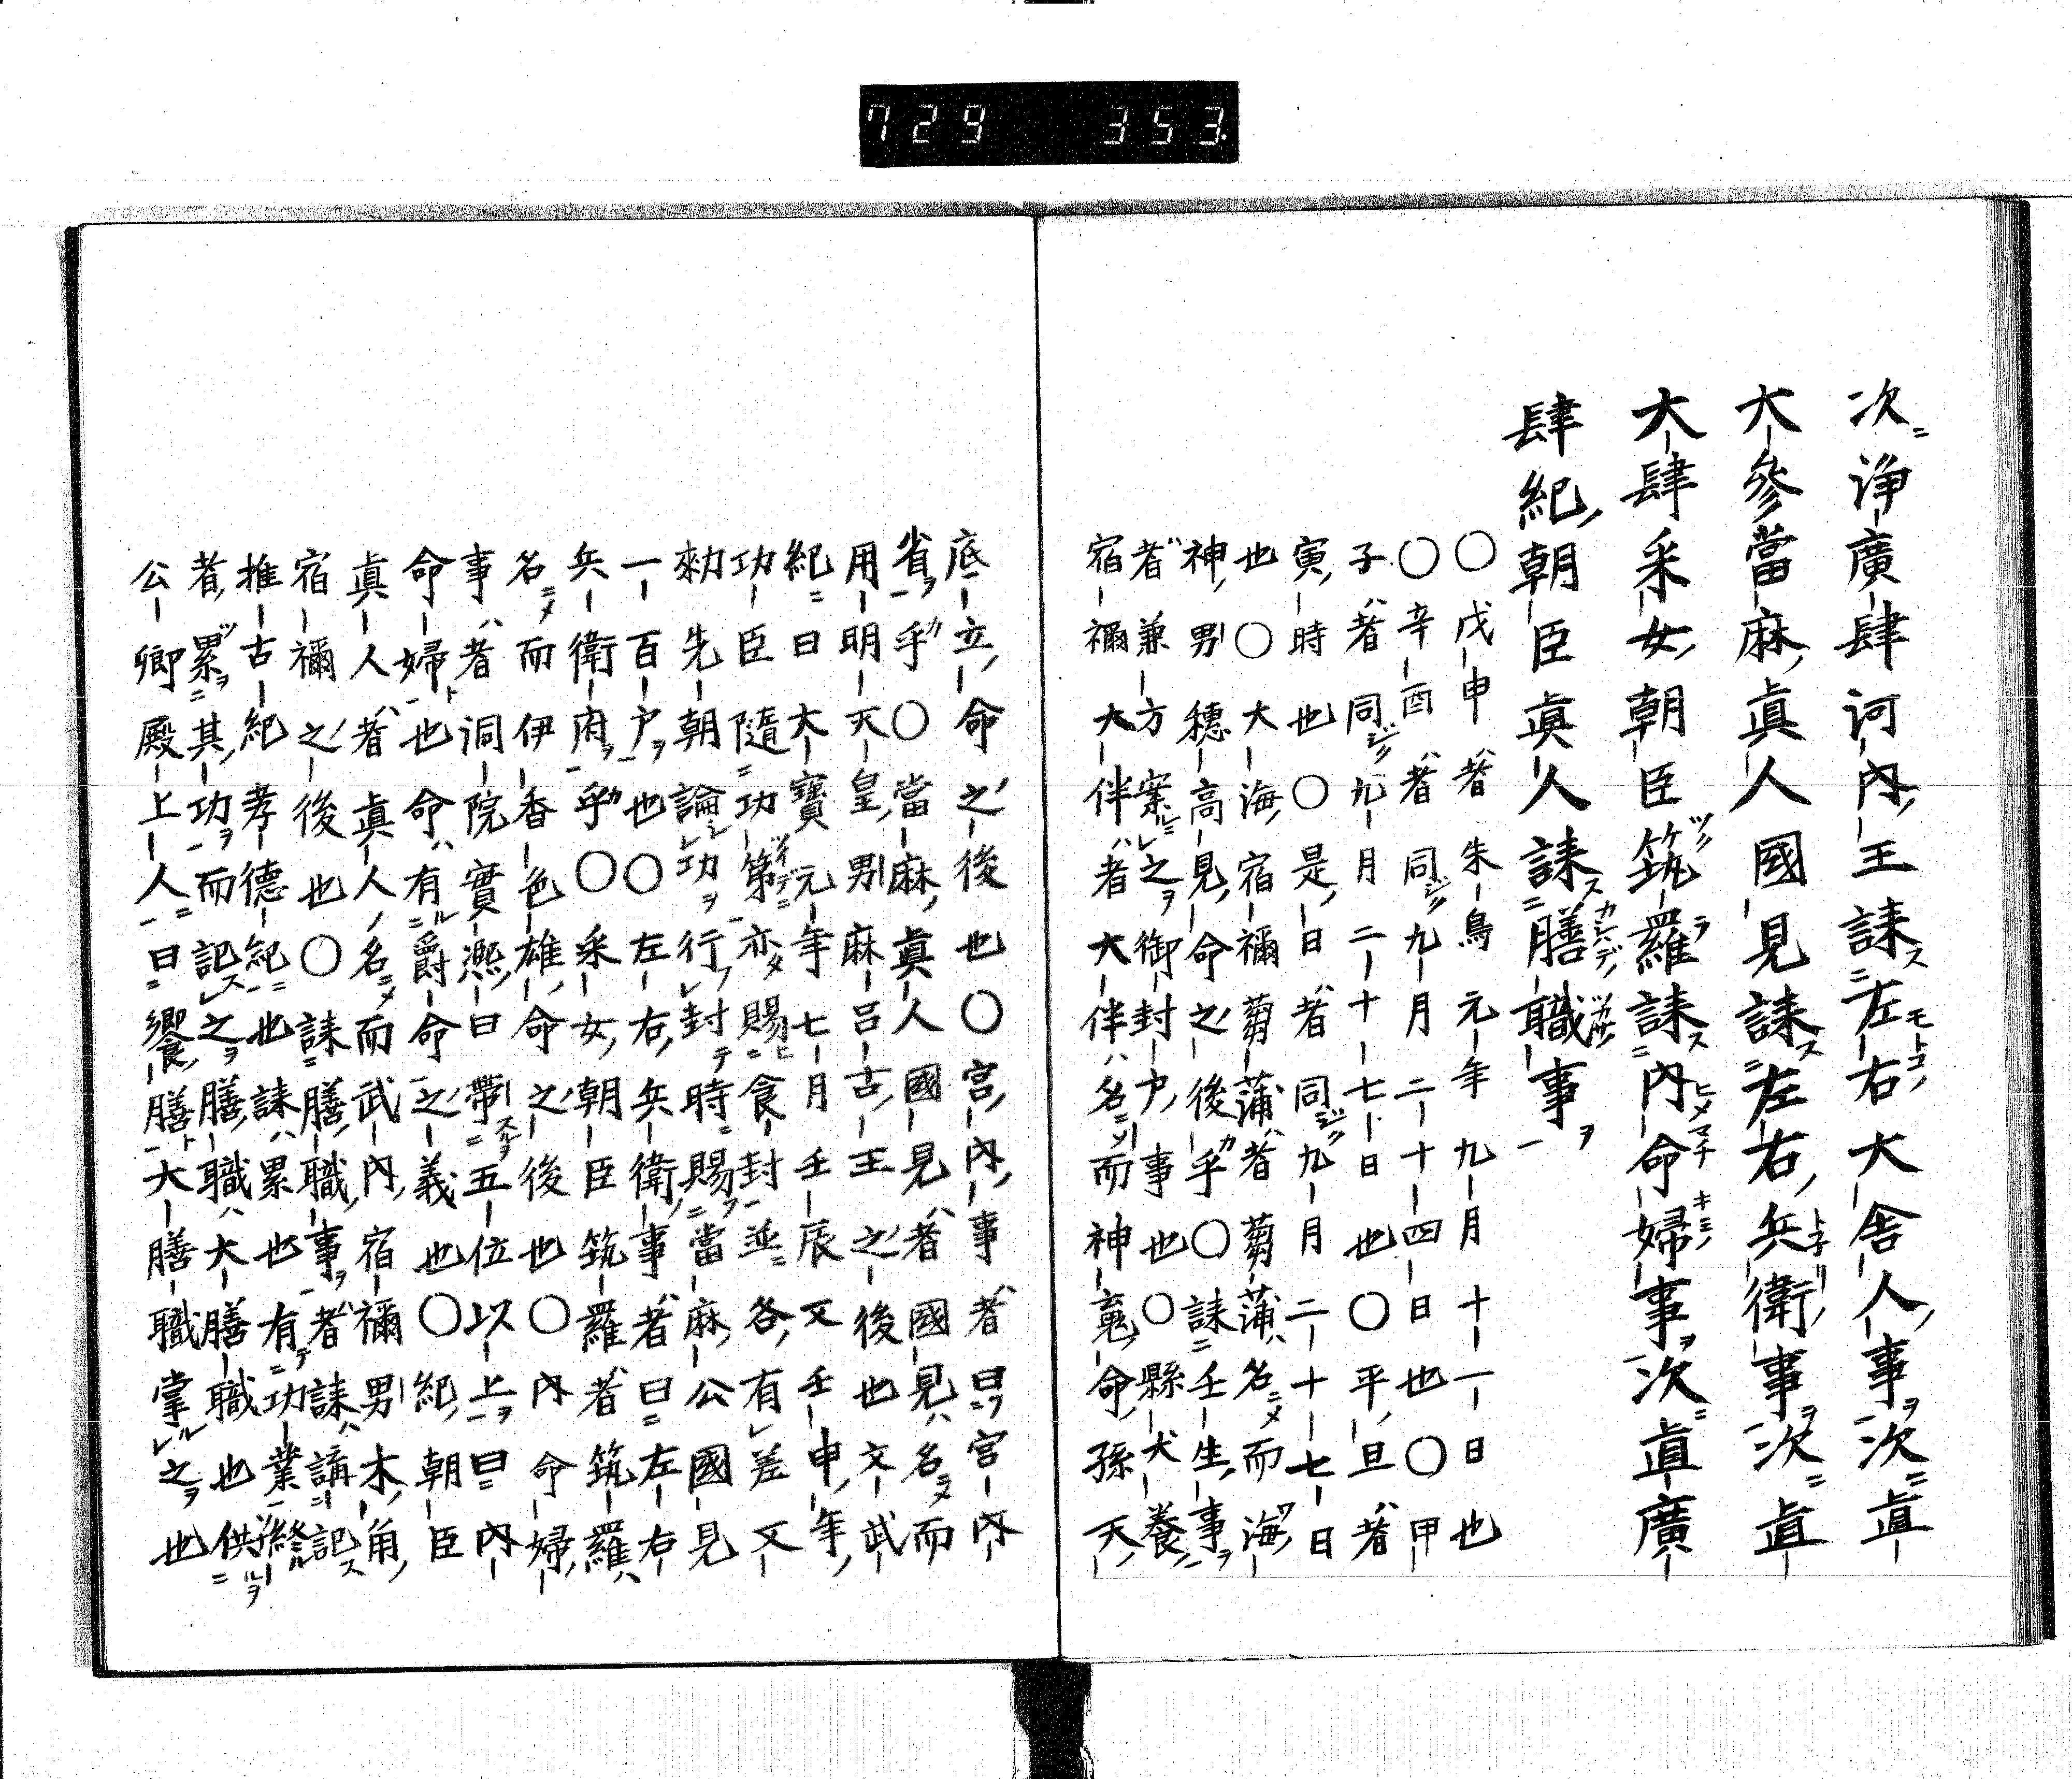 729 353
次淨廣肆河內王誄左右大舍人事次直
大參當麻眞人國見誄左右兵衛事次直
大肆采女朝臣筑羅誄內命婦事次直廣
肆紀朝臣眞人誄膳職事
〇戊申者朱鳥元年九月十一日也
〇辛酉者同九月二十四日也〇甲
子者同九月二十七日也〇平旦者
寅時也〇是日者同九月二十七日
也〇大海宿禰蒭蒲者蒭蒲名而海
神男穗高見命之後乎〇誄壬生事
者兼方案之御封戶事也〇縣犬養
宿禰大伴者大伴名而神竈命孫天
底立命之後也〇宮內事者曰宮內
省乎〇當麻眞人國見者國見名而
用明天皇男麻呂古王之後也文武
紀曰大寶元年七月壬辰又壬申年
功臣隨功第亦賜食封並各有差又
勑先朝論功行封時賜當麻公國見
一百戶也〇左右兵衛事者曰左右
兵衛府乎〇采女朝臣筑羅者筑羅
名而伊香色雄命之後也〇內命婦
事者洞院實凞曰帶五位以上曰內
命婦也命有爵命之義也〇紀朝臣
眞人者眞人名而武內宿禰男木角
宿禰之後也〇誄膳職事者誄講記
推古紀孝德紀也誄累也有功業終
者累其功而記之膳職大膳職也供
公卿殿上人曰饗膳大膳職掌之也